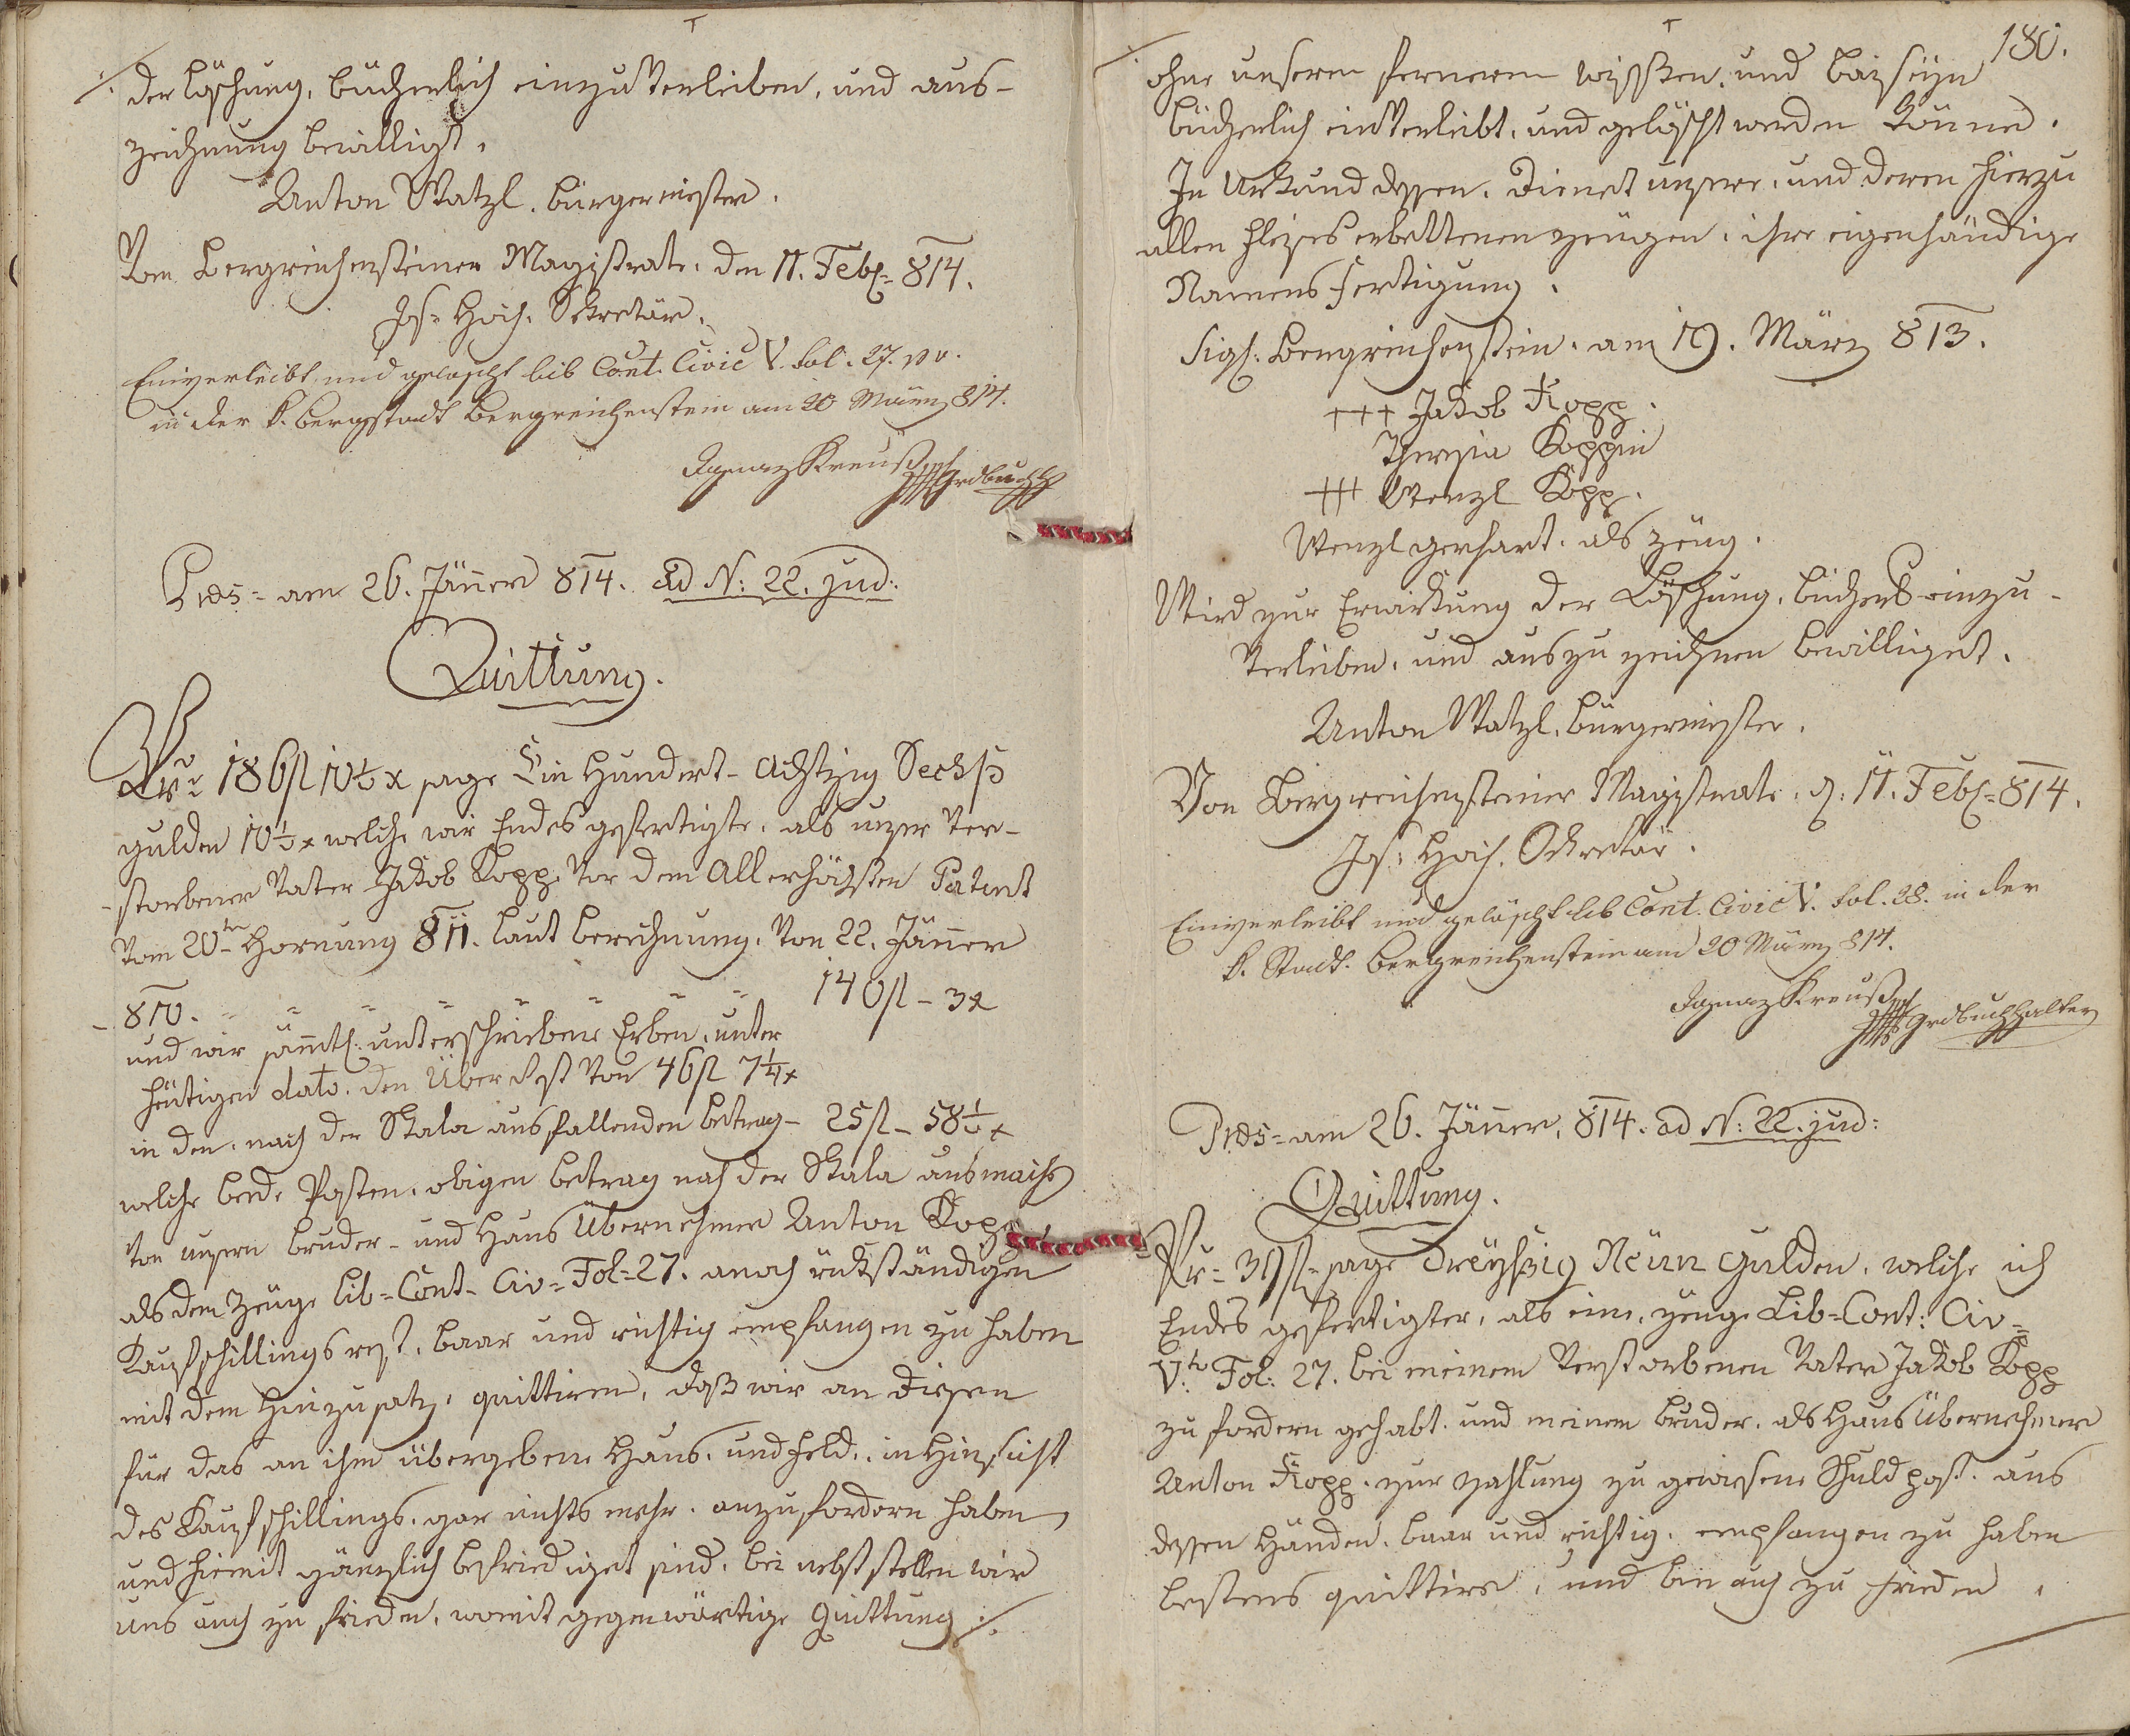 der Löschung, bücherlich einzuverleiben, und aus-
zeichnung bewilligt.
Anton Watzl. bürgermeister.
Vom Bergreichensteiner Magistrate. den 11. Feb. 814.
Jos= Hoch. Sekretär.
Einverleibt und gelöscht lib Cont. Civic V. fol. 27.
in der k. bergstadt Bergreichenstein am 20 März 814.
Ignaz Kreuß
Grdbuchh
Pres= am 26. Jänner 814. ad N: 22. jud:
Quittung.
186 fl 10½ x sage Ein Hundert- Achtzig Sechs
gulden 10½ x welche wir Endes gefertigte, als unser Ver-
-storbener Vater Jakob Kopp. Vor dem Allerhöchsten Patent
Vom 20ten Hornung 811. laut berechnung. Von 22. Jänner
- 810. = = = = = = = 140 fl - 3 x
und wir sämmtl: unterschriebene Erben, unter
heutigen dato. den Überrest Von 46 fl 7¼ x
in den, nach der Skala ausfallenden betrag - 25 fl - 58½ x
welche beide Posten, obigen betrag nach der Skala ausmacht
von unsern bruder - und Haus Übernehmer Anton Kopp
als dem Zeuge Lib= Cont- Civ= Fol= 27. anoch rükständigen
Kaufschillings rest, baar und richtig empfangen zu haben
mit dem Hinzusatz, quittiren, daß wir an diesen
für das an ihm übergebene Haus, und Feld, in Hinsicht
des Kaufschillings, gar nichts mehr, anzufordern haben,
und hiemit gänzlich befriediget sind, bei nebst stellen wir
uns auch zu frieden, womit gegenwärtige Quittung ./.
180.
ohne unserem fernerem wissen, und beiseyn
bücherlich einverleibt, und gelöscht werden könne.
In Urkund dessen, dienet unsere, und deren hierzu
allen fleises erbettenen zeugen, ihre eigenhändige
Namens fertigung.
Sigl: Bergreichenstein, am 19. März 813.
+++ Jakob Kopp.
Theresia Koppin
+++ Wenzl Kopp.
Wenzl gerhart. als zeug.
Wird zur Erwirkung der Löschung, bücherl einzu-
verleiben, und auszuzeichnen bewilliget.
Anton Watzl. bürgermeister.
Von Bergreichensteiner Magistrate. d: 11. Feb= 814.
Jos: Hoch. Sekretär.
Einverleibt und gelöscht lib Cont. Civic V. fol. 28. in der
k. Stadt. Bergreichenstein am 20 März 814.
Ignaz Kreuß
Grdbuchhalter
Pres= am 26. Jänner, 814. ad N: 22. jud:
Quittung.
Pr= 39 fl= sage Dreyßig Neün Gulden, welche ich
Endes gefertigter, als ein, zeuge Lib= Cont: Civ=
V:to Fol: 27. bei meinem Verstorbenen Vater Jakob Kopp
zu fordern gehabt, und meinem bruder, als Haus Übernehmer
Anton Kopp. zur zahlung zu gewiesene Schuldpost, aus
dessen Händen, baar und richtig, empfangen zu haben
bestens quittire, und bin auch zu frieden,